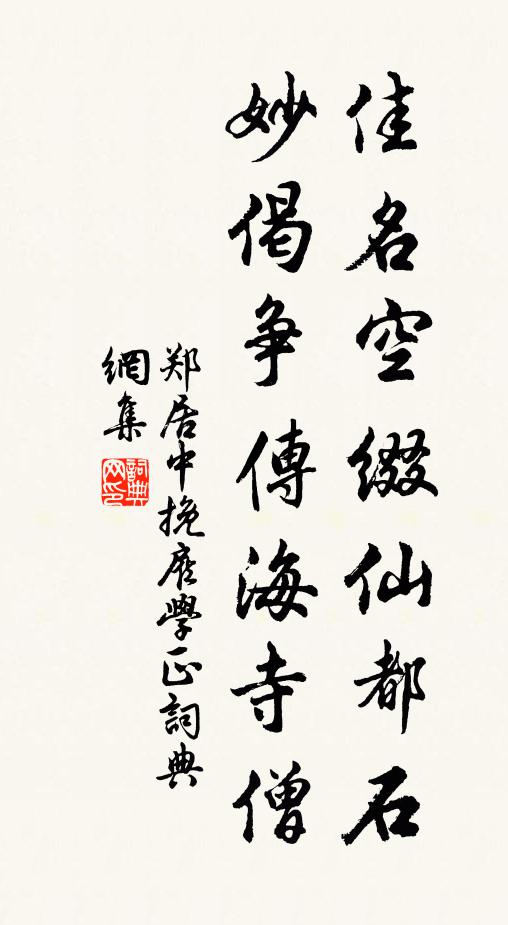 佳名空缀仙都石
妙偈争傳海寺僧
郑居中挽庭學正詞典
網集
詞典
网印